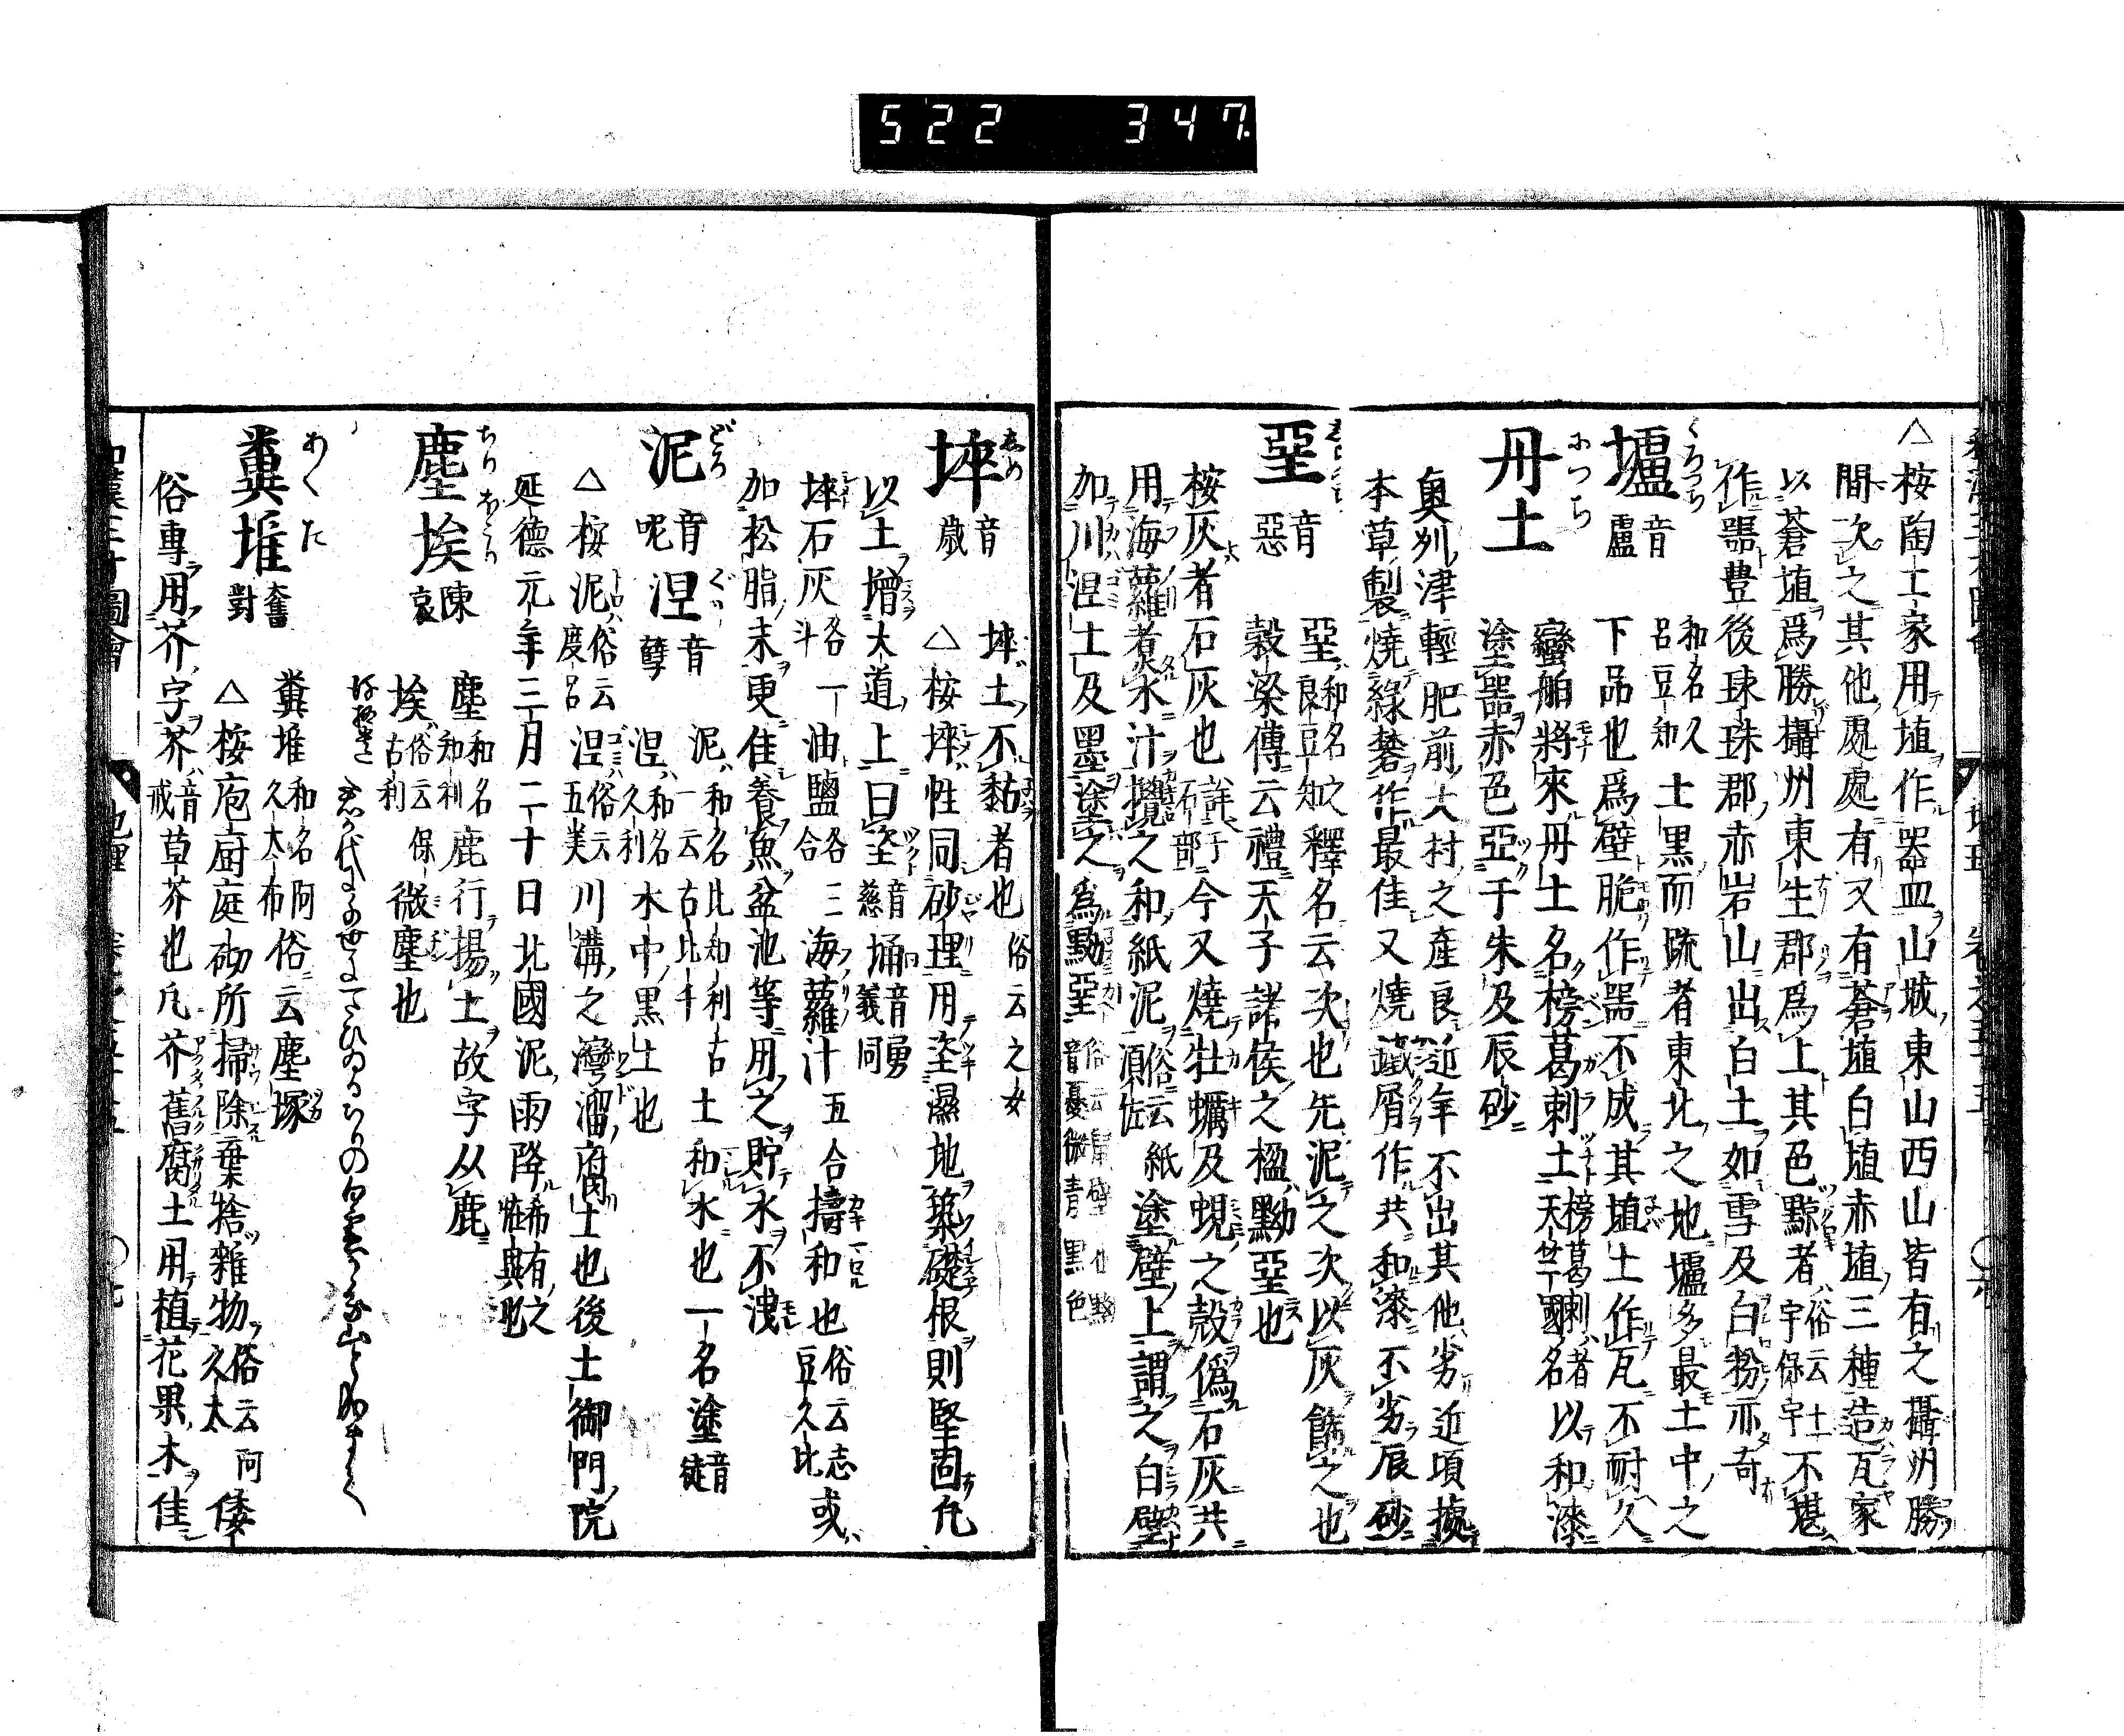 522 347.
△桉陶工家用埴作器皿山城東山西山皆有之攝州勝
間次之其他處處有又有蒼埴白埴赤埴三種造瓦家
以蒼埴爲勝攝州東生郡爲上其色黥者俗云土宇保宇不堪
作噐豊後球珠郡赤岩山出白土如雪及白粉亦奇
壚 くろつち 音盧 和名久呂豆知 土黒而疏者東北之地壚多最土中之
下品也爲壁脆作噐不成其埴土作瓦不耐久
丹土 につち 蠻舶將來丹土名榜葛刺土榜葛刺者天竺國名以和漆
塗噐赤色亞于朱及辰砂
奥州津輕肥前大村之產良近年不出其他劣近頃據
本草製燒綠礬作最佳又燒鐵屑作共和漆不劣辰砂
堊 音惡 堊和名之良豆知釋名云次也先泥之次以灰餙之也
糓梁傳云禮天子諸侯之楹黝堊也
桉灰者石灰也詳于石部今又燒牡蠣及蜆之殼僞石灰共
用海蘿煑水汁攪之和紙泥俗云須佐紙塗壁上謂之白壁
加川涅土及墨塗之爲黝堊音憂微青黒色
埣 音歲 埣土不黏者也俗云之女
△桉埣性同砂理用坖濕地築礎根則堅固凡
以土增大道上曰坖音慈埇音勇義同
埣石灰各一斗油鹽各三合海蘿汁五合擣和也俗云志豆久比或
加松脂末更佳養魚盆池等用之貯水不洩
泥 どろ 音呢 涅 音孽 泥和名比知利古一云古比千土和水也一名塗音徒
涅和名久利水中黒土也
△桉泥俗云度呂涅俗云五美川溝之灣溜腐土也後土御門院
延德元年三月二十日北國泥雨降希有之怪異也
塵埃 ちり ほこり 陳哀 塵和名知利鹿行揚土故字从鹿
埃俗云保古利微塵也
糞堆 あくた 奮對 糞堆和名阿久太布俗云塵塚
△桉庖厨庭砌所掃除棄捨雜物俗云阿久太倭
俗專用芥字芥音戒草芥也凡芥舊腐土用植花果木佳